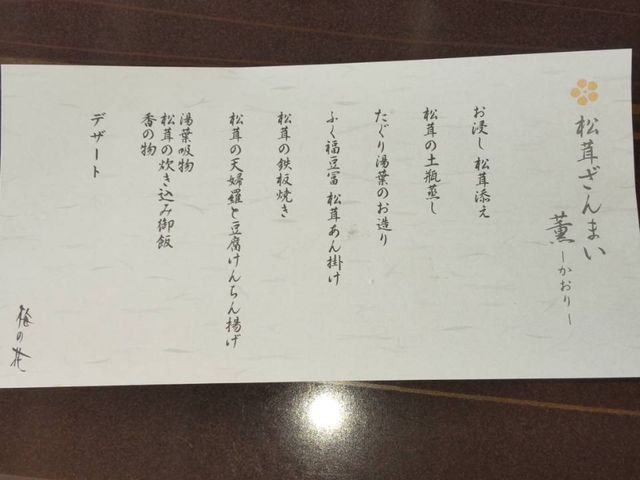 松茸ざんまい
薫ーかおりー
お浸し 松茸添え
松茸の土瓶蒸し
たぐり湯葉のお造り
ふく福豆冨 松茸あん掛け
松茸の鉄板焼き
松茸の天婦羅と豆腐けんちん揚げ
湯葉吸物
松茸の炊き込み御飯
香の物
デザート
梅の花